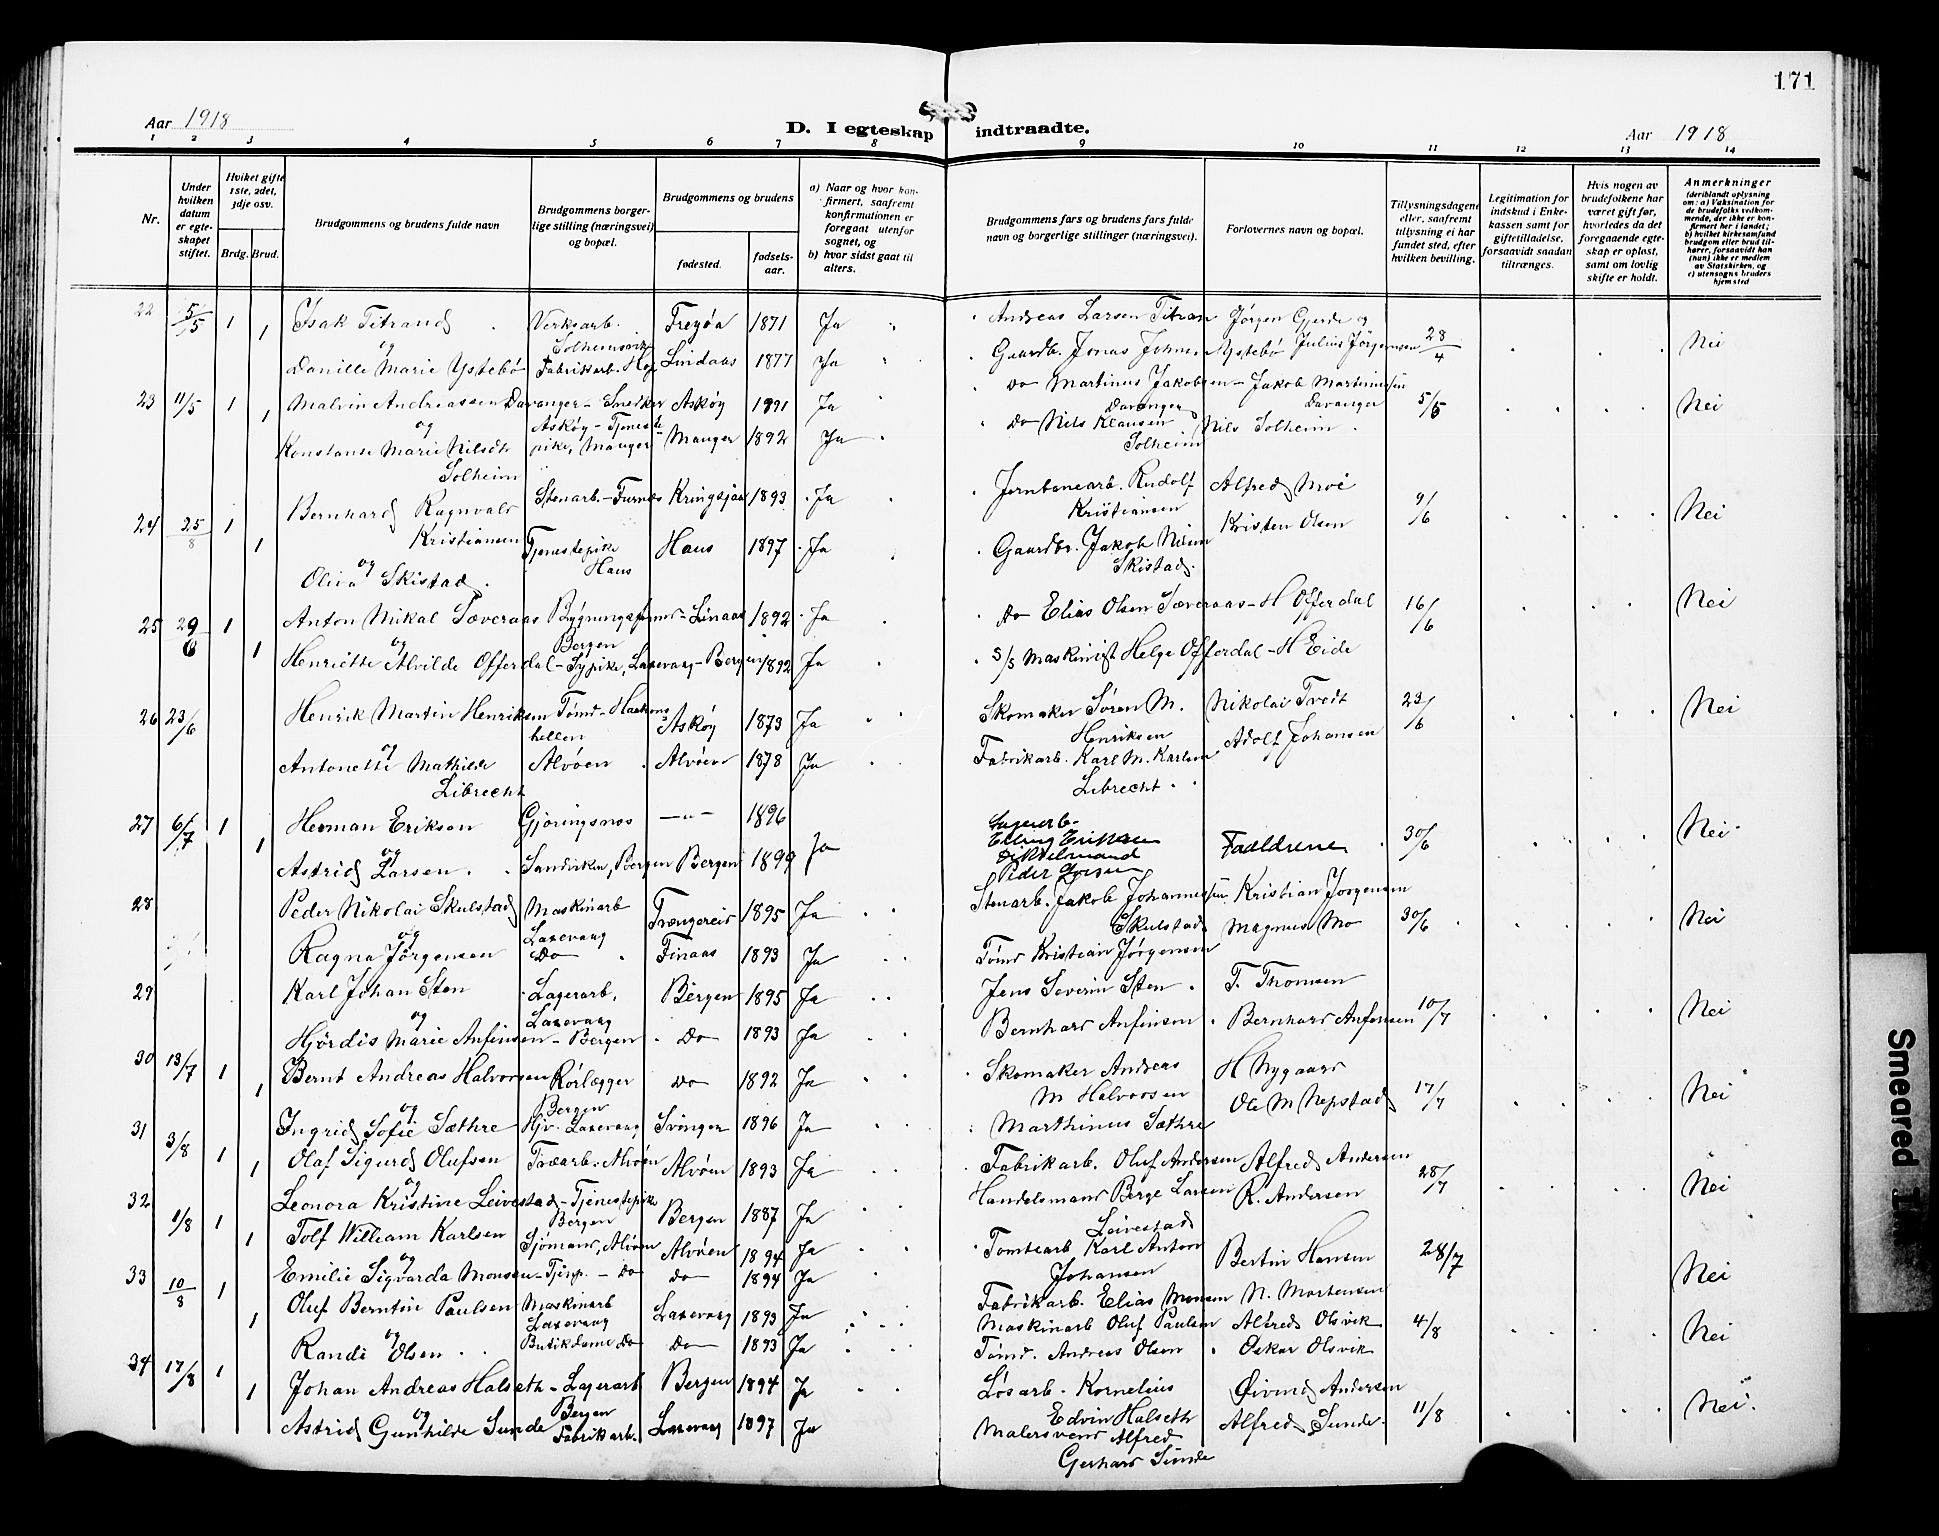 171
Aar 1918
D. I egteskap indtraadte.
Aar 1918
1 2 3 4 5 6 7 8 9 10 11 12 13 14
Nr.
Under hvilken datum er egteskapet stiftet.
Hviket gifte 1ste, 2det, 3dje osv.
Brdg. Brud.
Brudgommens og brudens fulde navn
Brudgommens borgerlige stilling (næringsvei) og bopæl.
Brudgommens og brudens
fødested.
fødselsaar.
a) Naar og hvor konfirmert, saafremt konfirmationen er foregaat utenfor sognet, og
b) hvor sidst gaat til alters.
Brudgommens fars og brudens fars fulde navn og borgerlige stillinger (næringsvei).
Forlovernes navn og bopæl.
Tillysningsdagene eller, saafremt tillysning ei har fundet sted, efter hvilken bevilling.
Legitimation for indskud i Enkekassen samt for giftetilladelse, forsaavidt saadan tiltrænges.
Hvis nogen av brudefolkene har været gift før, hvorledes da det foregaaende egteskap er opløst, samt om lovlig skifte er holdt.
Anmerkninger
(deriblandt oplysning om: a) Vaksination for de brudefolks vedkommende, der ikke er konfirmert her i landet; b) hvilket kirkesamfund brudgom eller brud tilhører, forsaavidt han (hun) ikke er medlem av Statskirken, og c) utensogns bruders hjemsted
22 5/5 1 Isak Titrand Verksarb. Solheimsvik Frøyøa 1871 Ja Andreas Larsen Titran Jørgen Gjerde og 28/4 Nei
og
1 Danille Marie Ystebö Fabrikarb. Hop Lindaas 1877 Ja Gaardb. Jonas Johnsen Ystebö Julius Jörgensen
23 11/5 1 Malvin Andreassen Davanger - Snedker Askøy 1891 Ja Do Martinus Jakobsen Davanger - Jakob Martinussen Davanger 5/5 Nei
og
1 Konstanse Marie Nilsdtr Solheim Askøy - Tjenestepike, Manger Manger 1892 Ja Do Nils Klausen Solheim Nils Solheim
24 25/8 1 Bernhard Ragnvald Kristiansen Stenarb. - Furnes Kringsjaa 1893 Ja Jernbanearb. Rudolf Kristiansen Alfred Moe 9/6 Nei
og
1 Oliva Skistad Tjenestepike Haus Haus 1897 Ja Gaardbr. Jakob Nilsen Skistad Kristen Olsen
25 29/6 1 Anton Mikal Sæveraas Bergen Linaas 1892 Ja Do Elias Olsen Sæveraas - H Offerdal 16/6 Nei
og
1 Henriette Alvilde Offerdal - Sypike, Laxevaag - Bergen 1892 Ja S/S Maskinist Helge Offerdal - H Eide
26 23/6 Henrik Martin Henriksen Tømr - Haakonshellen Askøy 1873 Ja Skomaker Sören M. Henriksen Nikolai Tvedt 23/6 Nei
og
Antonette Mathilde Librecht Alvøen Alvøen 1878 Ja Fabrikarb. Karl M. Karlsen Librecht Adolf Johansen
27 6/7 1 Herman Eriksen Gjøringsnes —"— 1896 Elling Eriksen 30/6 Nei
og
1 Astrid Larsen Sandviken, Bergen Bergen 1899 Ja Peder
28 Peder Nikolai Skulstad Maskinarb Laxevaag Trængereid 1895 Ja Stenarb. Jakob Johannessen Skulstad Kristian Jorgensen 30/6 Nei
og
Ragna Jörgensen Do Finaas 1893 Ja Tømr Kristian Jörgensen Magnus Mo
29 Karl Johan Sten Lagerarb. Laxevaag Bergen 1895 Ja Jens Severin Sten F. Thomsen 10/7 Nei
og
Hjördis Marie Anfinsen - Bergen Do 1893 Ja Bernhard Anfinsen Bernhard Anfinsen
30 13/7 1 Bernt Andreas Halvorsen Rörlægger Bergen Do 1892 Ja Skomaker Andreas M Halvorsen H Nygaard 17/7 Nei
og
1 Ingrid Sofie Sæthre Hjv. Laxevaag Svingen 1896 Ja Marthinus Sæthre Ole M Nepstad
31 3/8 1 Olaf Sigurd Olufsen Træarb. Alvöen Alvöen 1893 Ja Fabrikarb. Oluf Andersen Alfred Andersen 28/7 Nei
og
1 Leonora Kristine Leivestad - Tjenestepike Bergen Bergen 1887 Ja Handelsmand Berge Larsen Leivestad R. Andersen
32 1/8 1 Tolf William Karlsen Sjömand, Alvöen Alvöen 1894 Ja Tomtearb Karl Anton Johansen Bertin Hansen 28/7 Nei
og
1 Emilie Sigvarda Monsen - Tjenp. - Do Do 1894 Ja Fabrikarb. Elias Monsen N. Mortensen
33 10/8 1 Oluf Berntin Paulsen Maskinarb Laxevaag Laxevaag 1893 Ja Maskinarb Oluf Paulsen Alfred Olsvik 4/8 Nei
og
1 Randi Olsen Butikdame Do Do 1893 Ja Tømr. Andreas Olsen Oskar Olsvik
34 17/8 1 Johan Andreas Halseth - Lagerarb Bergen Bergen 1894 Ja Løsarb. Kornelius Edvin Halseth Øivind Andersen 11/8 Nei.
og
1 Astrid Gunhilde Sunde Fabrikarb. Laxevaag 1897 Ja Malersvend Alfred Gerhard Sunde Alfred Sunde
Smeared